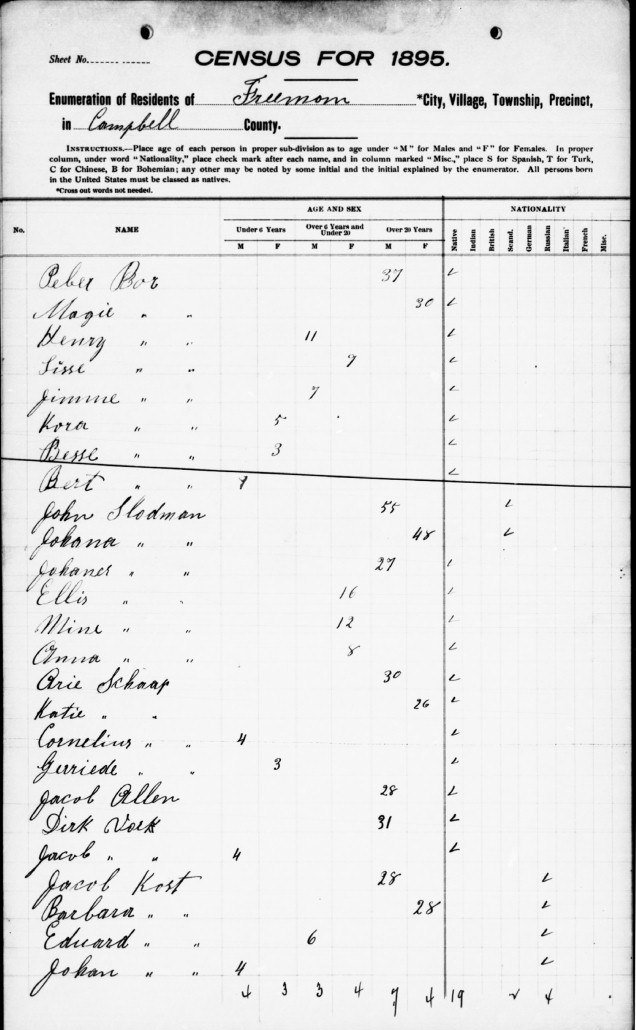 Sheet No.
CENSUS FOR 1895.
Enumeration of Residents of Freemom *City, Village, Township, Precinct,
in Campbell County.
INSTRUCTIONS.—Place age of each person in proper sub-division as to age under "M" for Males and "F" for Females. In proper
column, under word "Nationality," place check mark after each name, and in column marked "Misc.," place S for Spanish, T for Turk,
C for Chinese, B for Bohemian; any other may be noted by some initial and the initial explained by the enumerator. All persons born
in the United States must be classed as natives.
*Cross out words not needed.
AGE AND SEX NATIONALITY
No. NAME Under 6 Years Over 6 Years and Under 20 Over 20 Years Native Indian British Scand. German Russian Italian French Misc.
M F M F M F
Peber Bor 37 ✓
Magie " " 30 ✓
Henry " " 11 ✓
Lisse " " 9 ✓
Jimme " " 7 ✓
Kora " " 5 ✓
Besse " " 3 ✓
Bert " " 1 ✓
John Slodman 55 ✓
Johana " " 48 ✓
Johanes " " 27 ✓
Ellis " " 16 ✓
Mine " " 12 ✓
Anna " " 8 ✓
Arie Schaap 30 ✓
Katie " " 26 ✓
Cornelius " " 4 ✓
Gerriede " " 3 ✓
Jacob Allen 28 ✓
Dirk Vock 31 ✓
Jacob " " 4 ✓
Jacob Kost 28 ✓
Barbara " " 28 ✓
Eduard " " 6 ✓
Johan " " 4 ✓
4 3 3 4 7 4 19 2 4